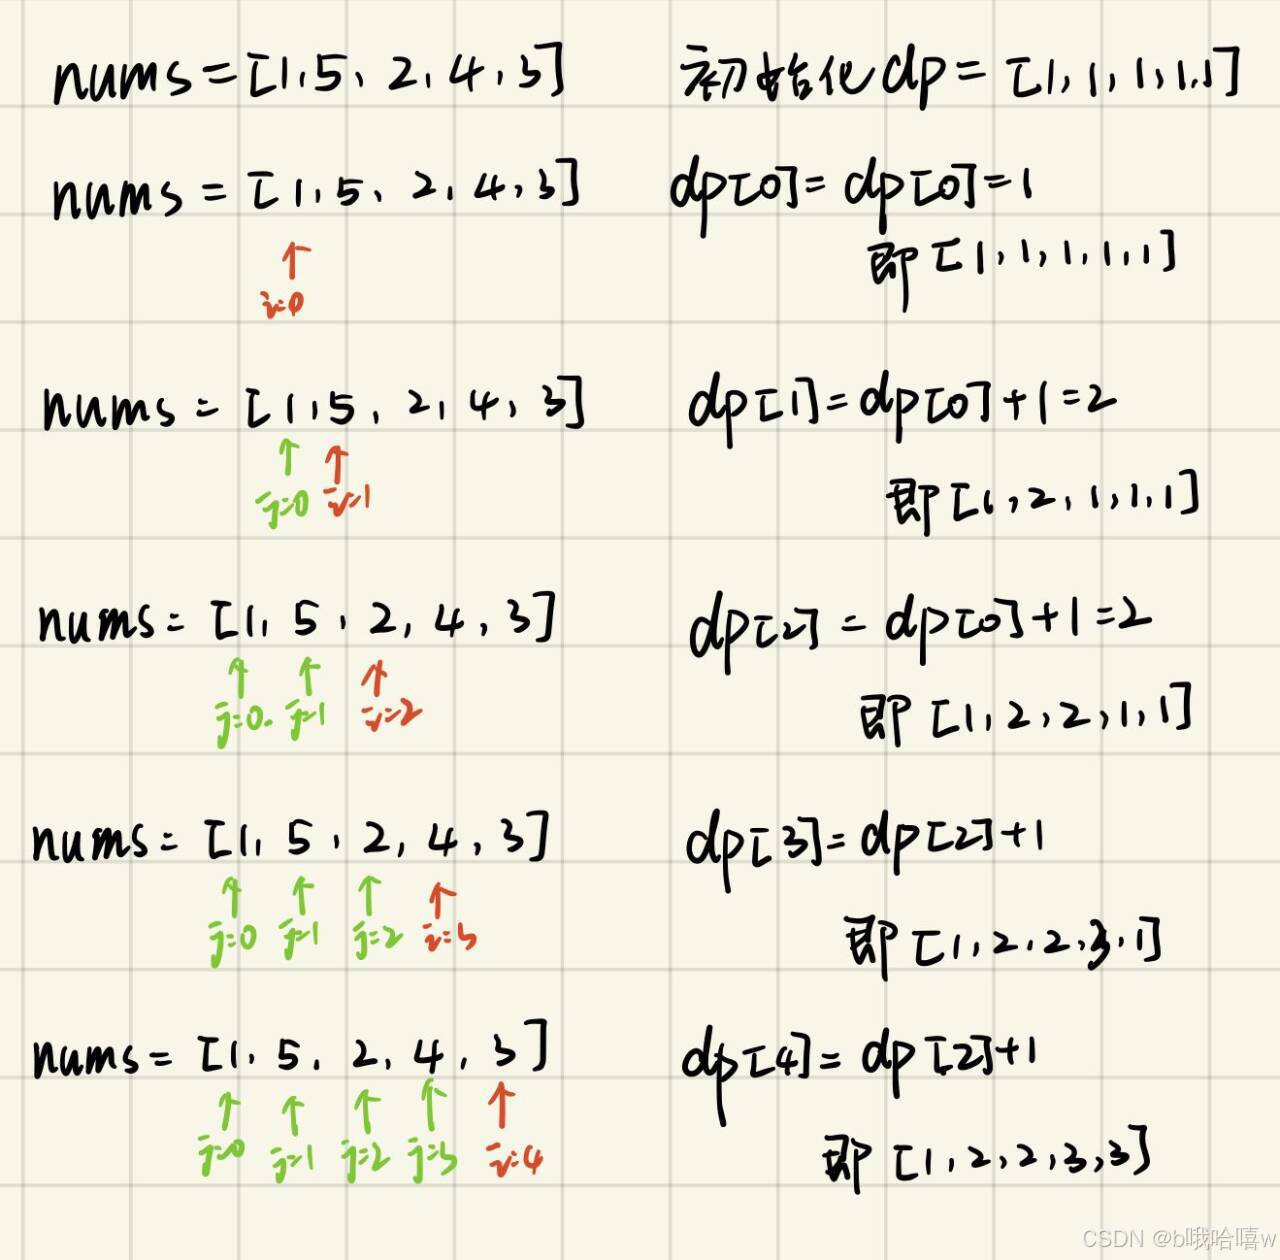 nums=[1,5、2,4,3] 初始化dp=[1,1,1,1,1]
nums=[1,5、2,4,3] dp[0]=dp[0]=1
i=0 即[1,1,1,1,1]
nums=[1,5,2,4,3] dp[1]=dp[0]+1=2
j=0 i=1 即[1,2,1,1,1]
nums=[1,5,2,4,3] dp[2]=dp[0]+1=2
j=0. j=1 i=2 即[1,2,2,1,1]
nums=[1,5,2,4,3] dp[3]=dp[2]+1
j=0 j=1 j=2 i=3 即[1,2,2,3,1]
nums=[1,5,2,4,3] dp[4]=dp[2]+1
j=0 j=1 j=2 j=3 i=4 即[1,2,2,3,3]
CSDN @b哦哈嘻w